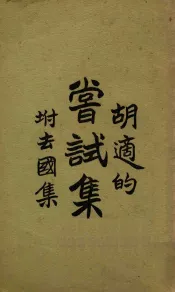 胡適的
嘗試集
坿去國集